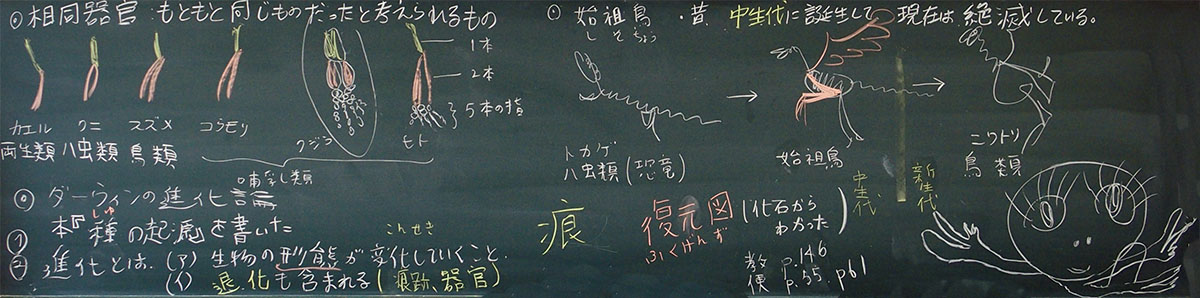 ◎相同器官:もともと同じものだったと考えられるもの
1本
2本
5本の指
カエル
ワニ
スズメ
コウモリ
クジラ
ヒト
両生類
ハ虫類
鳥類
哺乳類
◎ダーウィンの進化論
① 本『種の起源』を書いた
しゅ
② 進化とは、(ア)生物の形態が変化していくこと。
(イ)退化も含まれる(痕跡器官)
こんせき
・始祖鳥・昔、中生代に誕生して現在は絶滅している。
しそちょう
→
→
トカゲ
ハ虫類(恐竜)
始祖鳥
ニワトリ
鳥類
中生代
新生代
痕
復元図(化石からわかった)
ふくげんず
教 p.146
便 p.55. p61